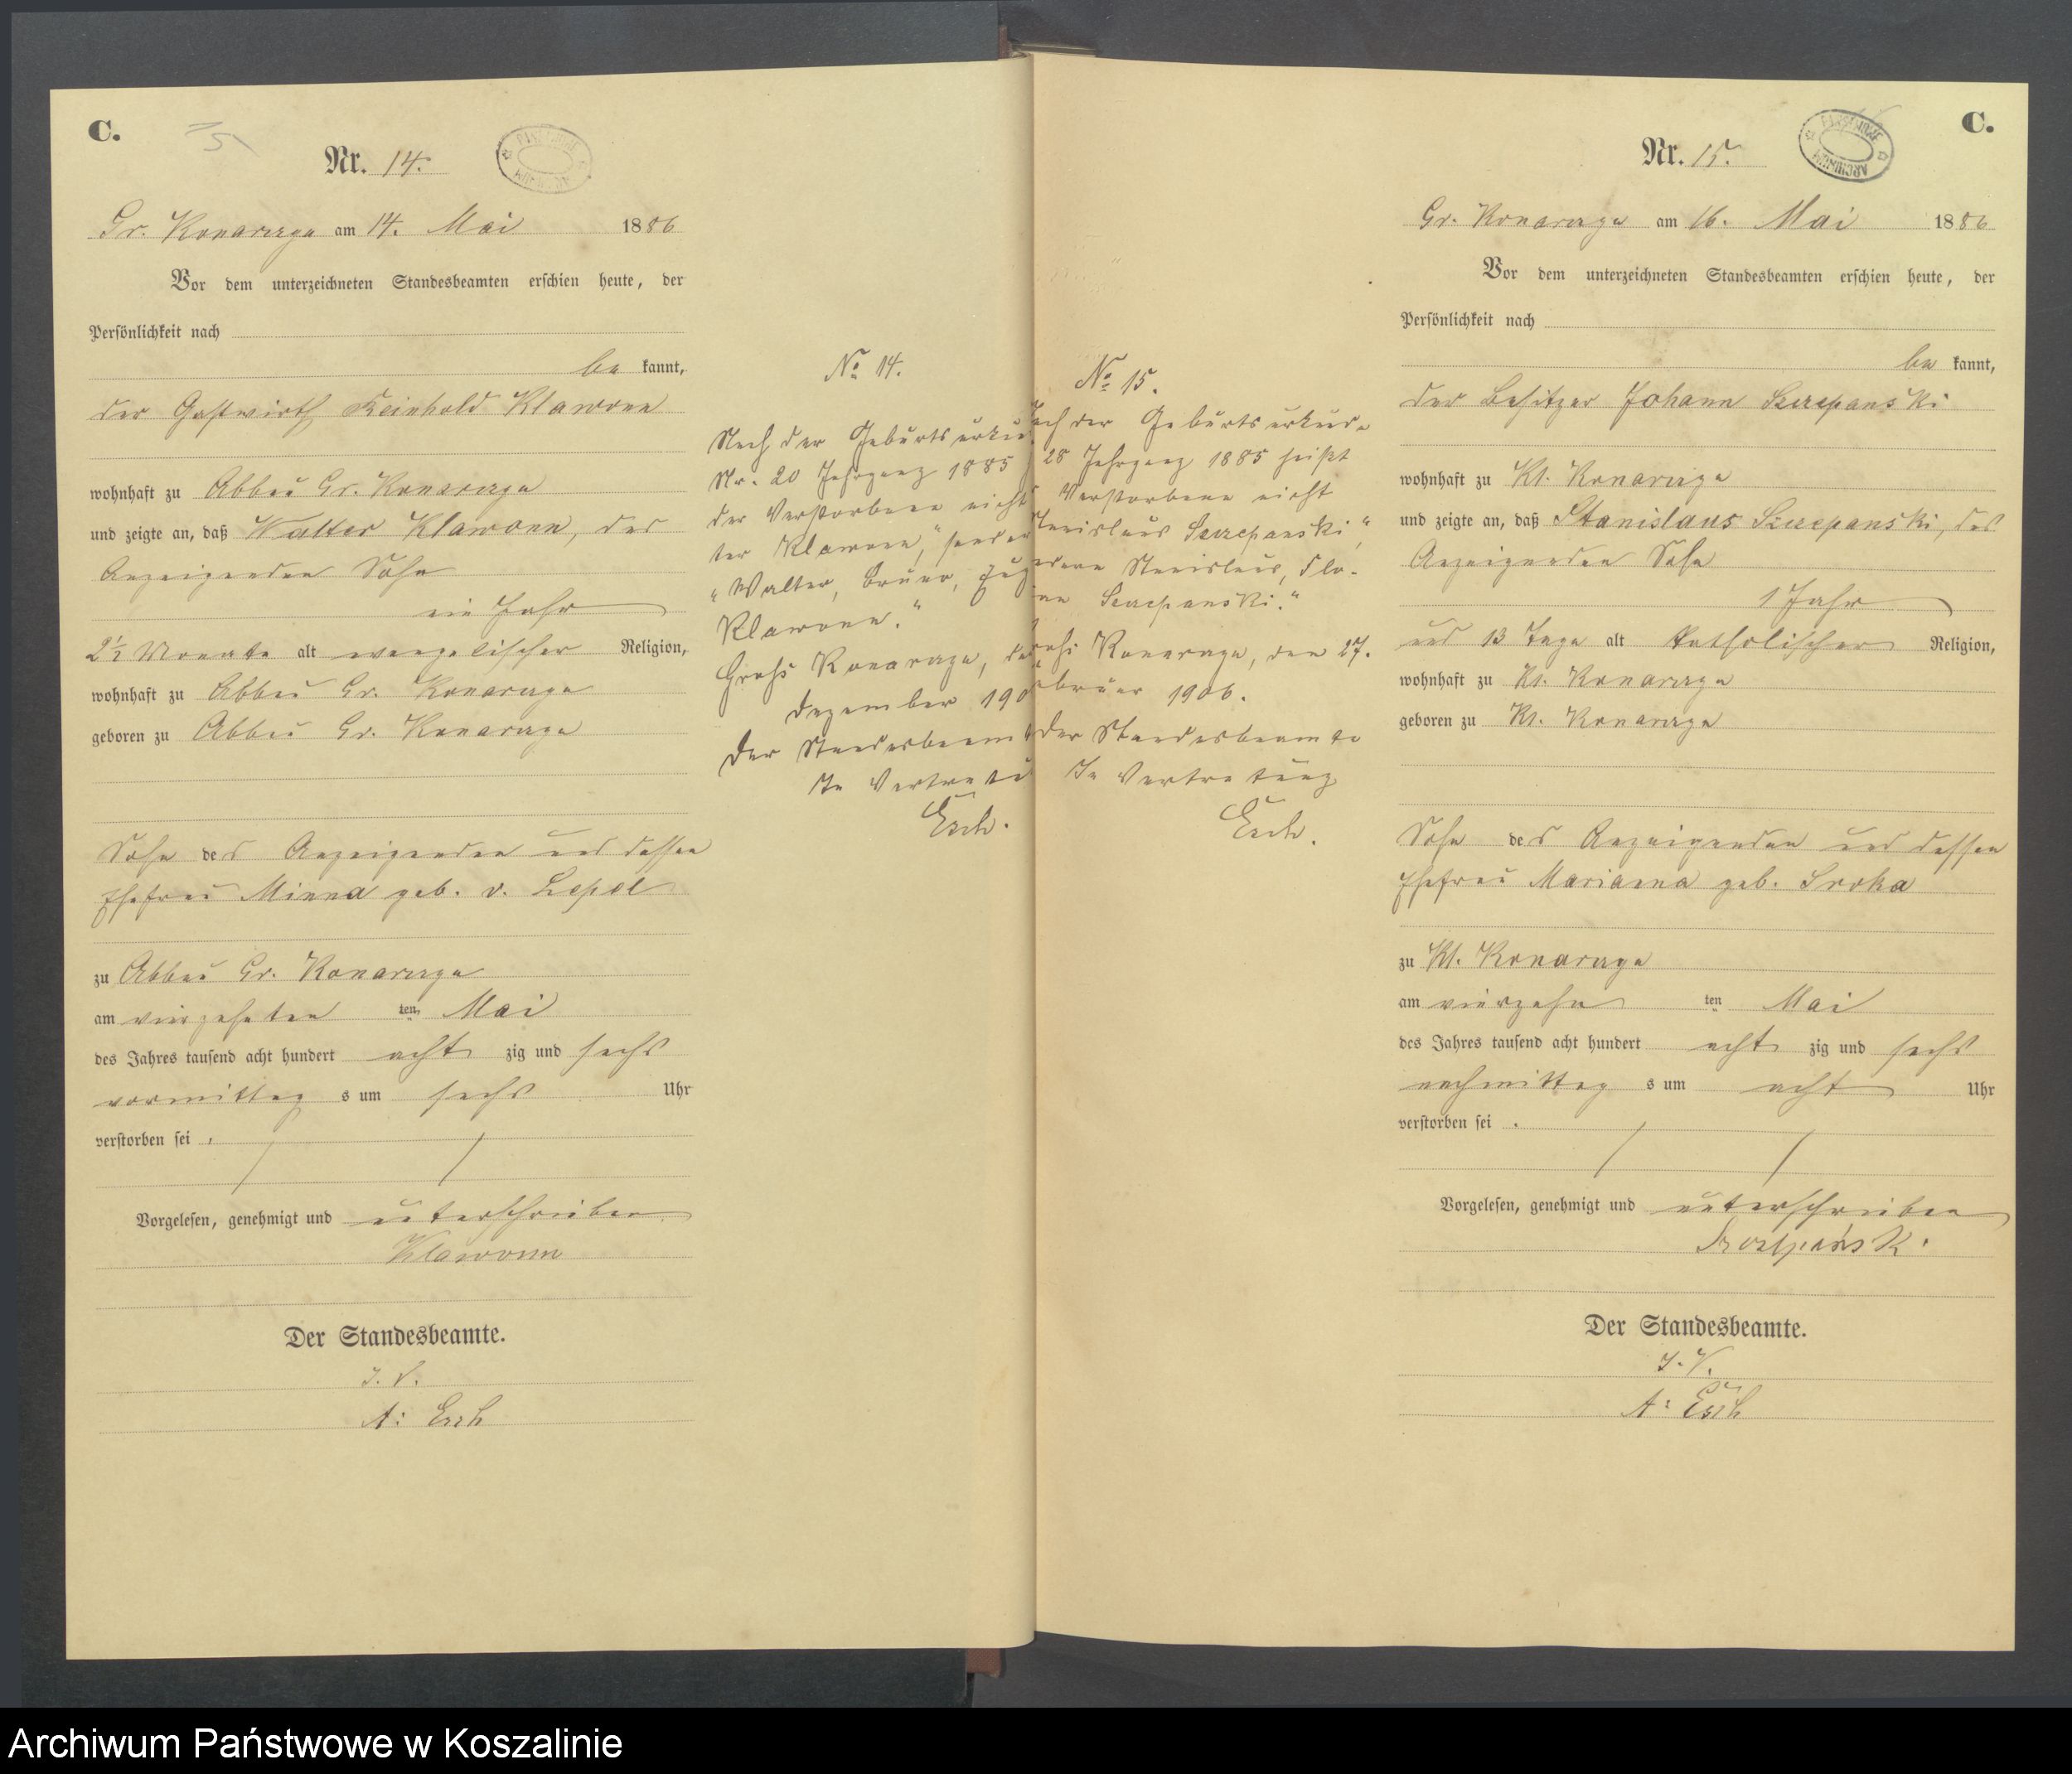 C.
Nr. 14.
Gr. Konarczyn am 14. Mai 1886
Vor dem unterzeichneten Standesbeamten erschien heute, der
Persönlichkeit nach
be kannt,
der Gastwirth Reinhold Klawonn
wohnhaft zu Abbau Gr. Konarczyn
und zeigte an, daß Walter Klawonn, des
Anzeigenden Sohn
ein Jahr
2½ Monate alt evangelischer Religion,
wohnhaft zu Abbau Gr. Konarczyn
geboren zu Abbau Gr. Konarczyn
Sohn des Anzeigenden und dessen
Ehefrau Minna geb. v. Lepel
zu Abbau Gr. Konarczyn
am vierzehnten ten Mai
des Jahres tausend acht hundert acht zig und sechs
vormittag s um sechs Uhr
verstorben sei.
Vorgelesen, genehmigt und unterschrieben
Klawonn
Der Standesbeamte.
I. V.
A: Esch
No 14.
Nach der Geburtsurku
Nr. 20 Jahrgang 1885
der Verstorbene nicht
ter Klawonn," sonder
"Walter, Bruno,
Klawonn."
Groß Konarczyn, d
Dezember 190
Der Standesbeamt
In Vertretu
Esch.
No 15.
ach der Geburtsurkun-
28 Jahrgang 1885 heißt
Verstorbene nicht
tanislaus Szczepanski,"
ndern Stanislaus, Flo-
ian Szczepanski."
roß Konarczyn, den 27.
ebruar 1906.
Der Standesbeamte
In Vertretung
Esch.
C.
Nr. 15.
Gr. Konarczyn am 16. Mai 1886
Vor dem unterzeichneten Standesbeamten erschien heute, der
Persönlichkeit nach
be kannt,
der Besitzer Johann Szczepanski
wohnhaft zu Kl. Konarczyn
und zeigte an, daß Stanislaus Szczepanski, des
Anzeigenden Sohn
1 Jahr
und 13 Tage alt katholischer Religion,
wohnhaft zu Kl. Konarczyn
geboren zu Kl. Konarczyn
Sohn des Anzeigenden und dessen
Ehefrau Marianna geb. Sroka
zu Kl. Konarczyn
am vierzehn ten Mai
des Jahres tausend acht hundert acht zig und sechs
nachmittag s um acht Uhr
verstorben sei.
Vorgelesen, genehmigt und unterschrieben
Der Standesbeamte.
I. V.
A: Esch
Archiwum Państwowe w Koszalinie